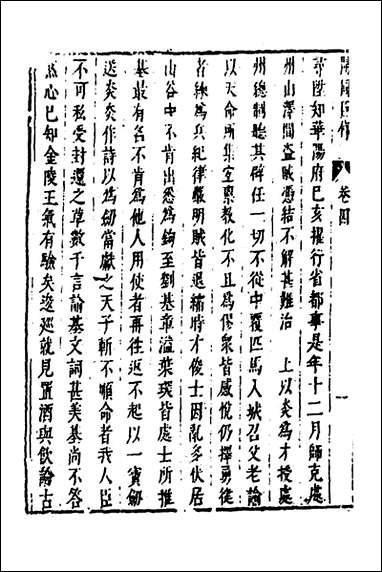 開國臣傳　卷四　一
尋陞知華陽府己亥擢行省都事是年十二月師克處
州山澤間盜賊憑結不解甚難治　上以炎為才授處
州總制聽其辟任一切不從中覆匹馬入城召父老諭
以天命所集宣察教化不且為僇眾皆感悅仍擇勇徒
者練為兵紀律嚴明賊皆退縮時才俊士因亂多伏居
山谷中不肯出悉為鉤至劉基章溢葉琛皆處士所推
基最有名不肯為他人用使者再往返不起以一寶劔
送炎炎作詩以為劔當獻之天子斬不順命者我人臣
不可私受封還之草數千言諭基文詞甚美基尚不答
然心已知金陵王氣有驗矣逡巡就見置酒與飲論古